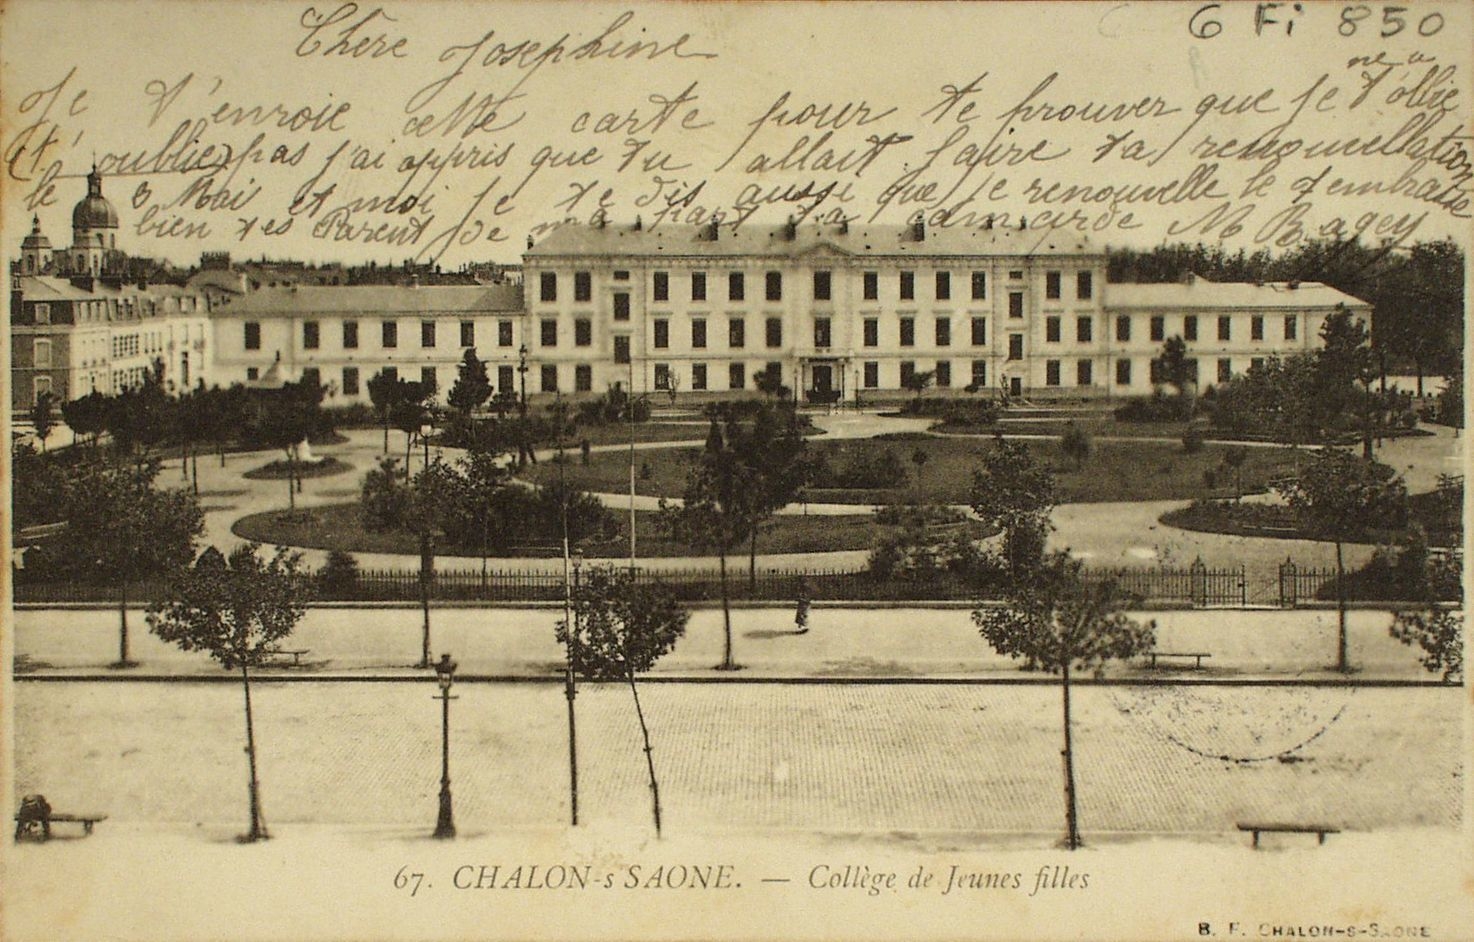 6 Fi 850
Chère Josephine
Je t'envoie cette carte pour te prouver que je ne t'ollie
(t'oublie) pas j'ai appris que tu allait faire ta renouvellation
le 3 Mai et moi je te dis aussi que je renouvelle le t'embrasse
bien tes Parent de ma part ta camarde M Bagey
67. CHALON-s SAONE. — Collège de Jeunes filles
B. F. CHALON-S-SAONE